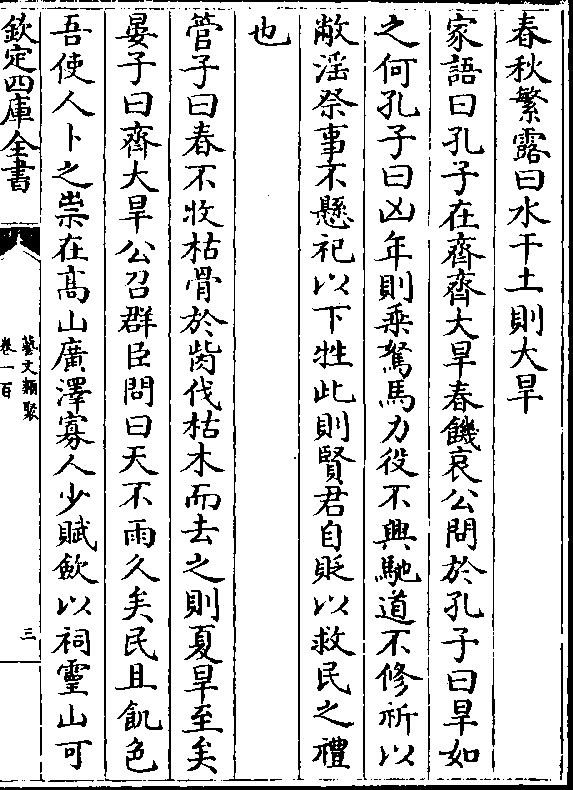 春秋繁露曰水干土則大旱
家語曰孔子在齊齊大旱春饑哀公問於孔子曰旱如
之何孔子曰凶年則乘駑馬力役不興馳道不修祈以
敝滛祭事不懸祀以下牲此則賢君自貶以救民之禮
也
管子曰春不收枯骨於歬伐枯木而去之則夏旱至矣
晏子曰齊大旱公召群臣問曰天不雨久矣民且飢色
吾使人卜之祟在髙山廣澤寡人少賦歛以祠靈山可
欽定四庫全書
藝文類聚
卷一百
三